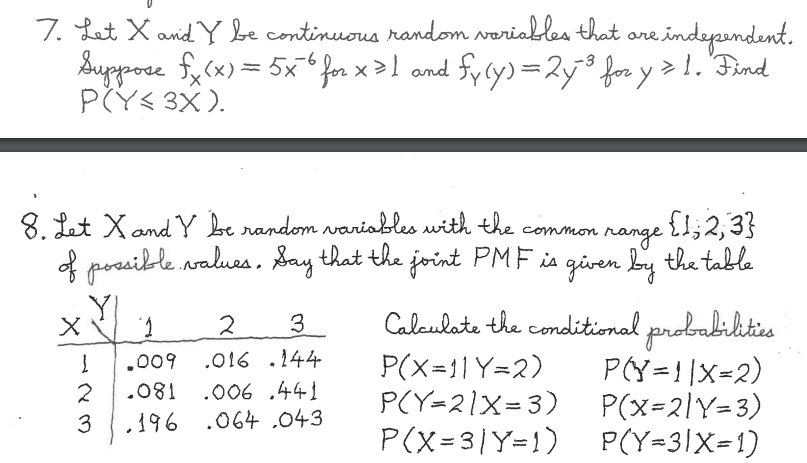 7. Let X and Y be continuous random variables that are independent.
Suppose fₓ(x) = 5x⁻⁶ for x ≥ 1 and f_Y(y) = 2y⁻³ for y ≥ 1. Find
P(Y ≤ 3X).
8. Let X and Y be random variables with the common range {1, 2, 3}
of possible values. Say that the joint PMF is given by the table
X \ Y 1 2 3
1 .009 .016 .144
2 .081 .006 .441
3 .196 .064 .043
Calculate the conditional probabilities
P(X=1|Y=2) P(Y=1|X=2)
P(Y=2|X=3) P(X=2|Y=3)
P(X=3|Y=1) P(Y=3|X=1)